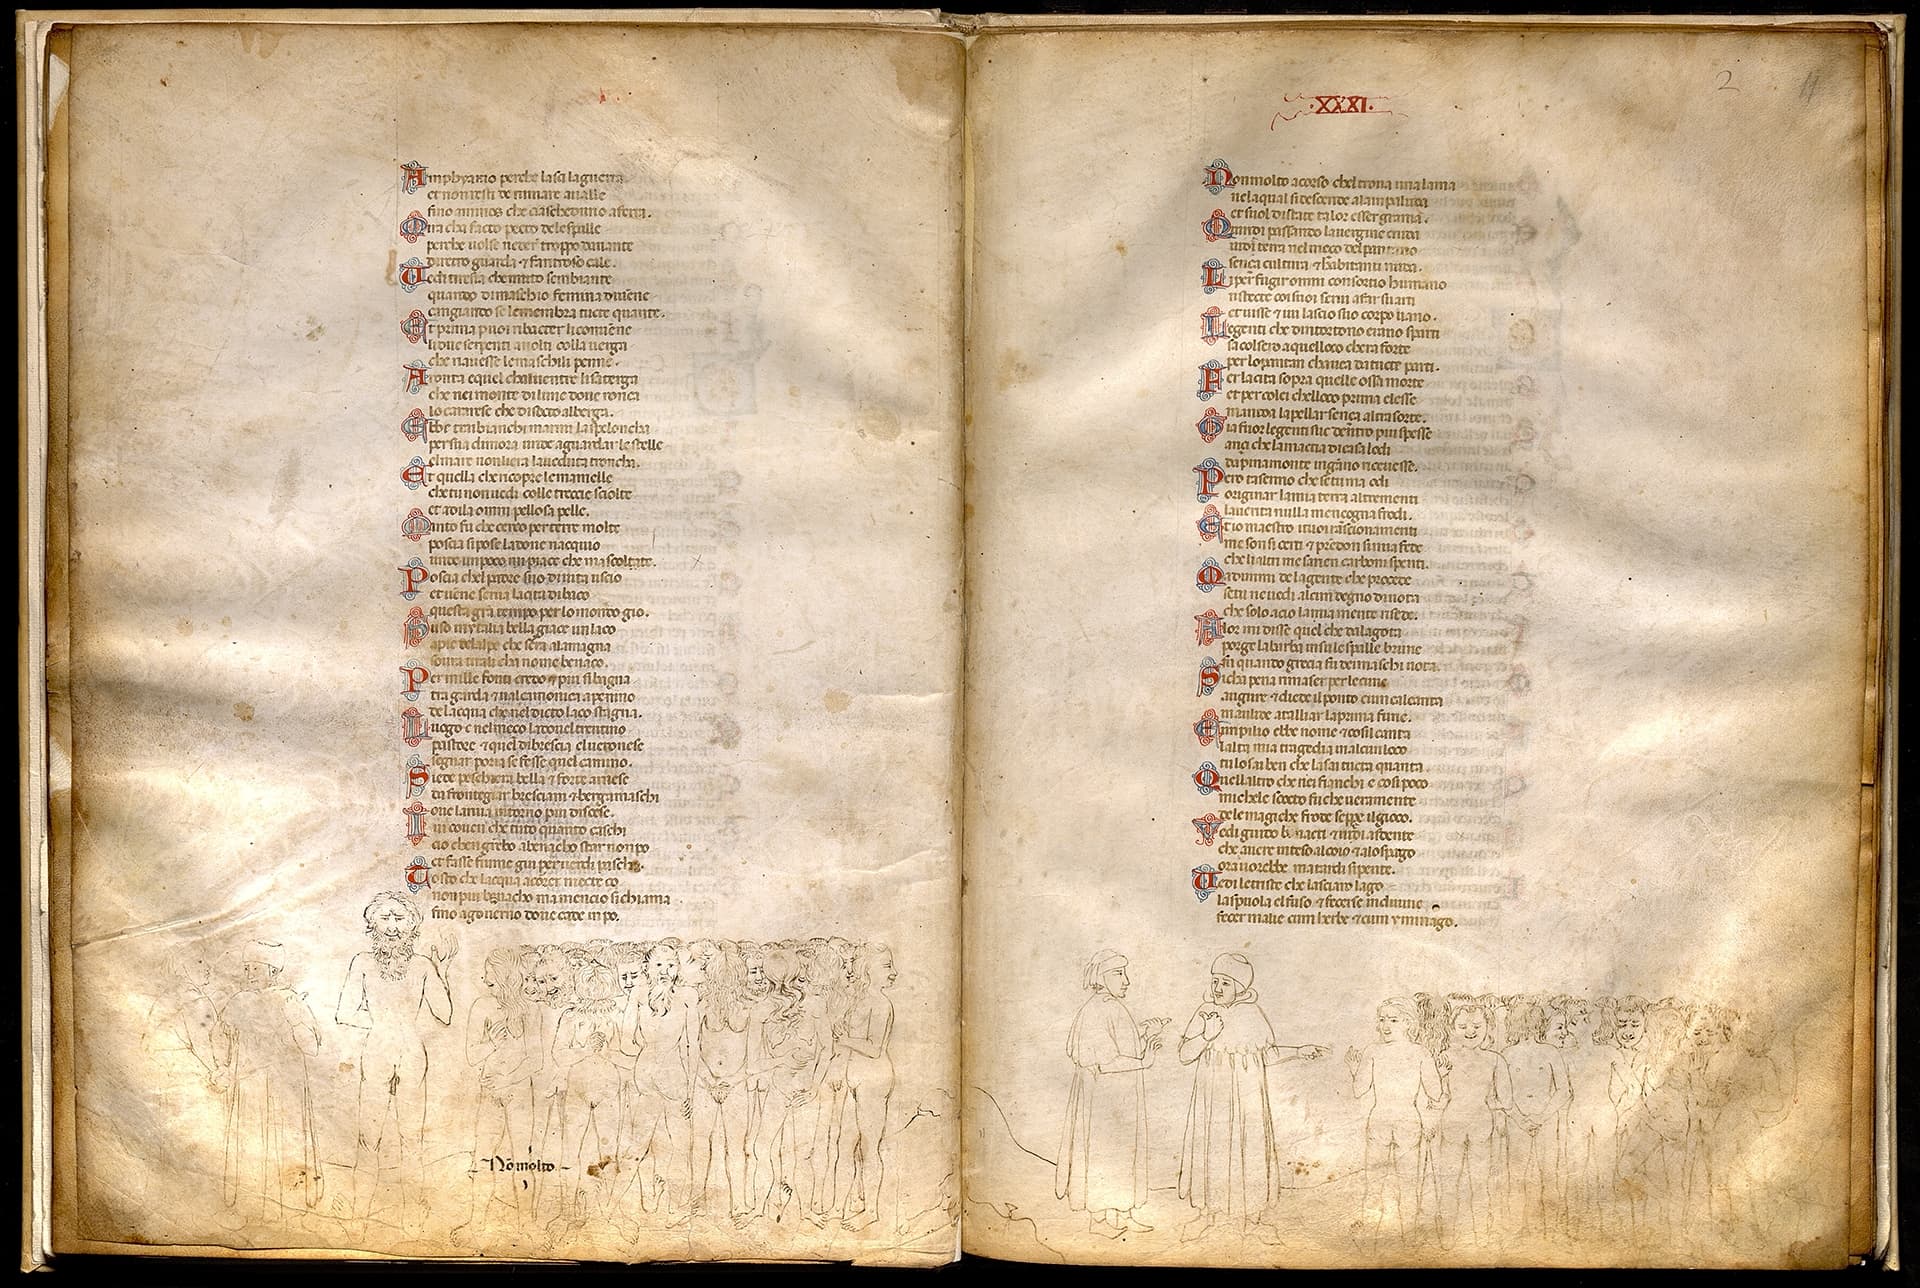 Amphyarao perche lasci laguerra
et non resti de ruinare aualle
fino aminos che ciascheduno aferra.
Mira cha facto pecto delespalle
perche uolse ueder troppo dauante
diretro guarda & fa ritroso calle.
Vedi tiresia che muto sembiante
quando di maschio femina diuēne
cangiando se lemembra tucte quante.
Et prima puoi ribatter li conuēne
li due serpenti auolti colla uerga
che riauesse le maschili penne.
Aronta e quel chaluentre lisaterga
che nei monte di luni doue ronca
lo cararese che di socto alberga.
Ebbe tra bianchi marmi la spelonca
per sua dimora unde aguardar le stelle
el mare non li era la ueduta tronca.
Et quella che ricopre le mamelle
che tu non uedi colle treccie sciolte
et adila omni pellosa pelle.
Manto fu che cerco per terre molte
poscia si pose la doue nacquio
unde un poco mi piace che mascoltate.
Poscia chel padre suo di uita uscio
et uēne serua la cita di baco
questa grā tempo per lo mondo gio.
Suso in ytalia bella giace un laco
apie delalpe che sera alamagna
soura tirali cha nome benaco.
Per mille fonti credo & piu si bagna
tra garda & ual camonica apenino
de lacqua che nel dicto laco stagna.
Luogo e nel meço la doue l trentino
pastore & quel di brescia el ueronese
segnar poria se fesse quel camino.
Siede peschiera bella & forte arnese
da frontegiar bresciani & bergamaschi
oue la riua intorno piu discese.
Iui conuen che tuto quanto caschi
cio chen grebo abenacho star non po
et fasse fiume giu per uerdi paschi.
Tosto che lacqua acorer mecte co
non piu benacho ma mencio si chiama
fino agouerno doue cade in po.
Nō molto
.XXXI.
2
Non molto a corso chel troua una lama
nela qual si descende alampaluda
et suol distate talor esser grama.
Quindi passando la uergine cruda
uidi terra nel meço del pantano
sença cultura & dhabitanti nuda.
Li per fugir omni consortio humano
ristecte coi suoi serui afar su arti
et uisse & ui lascio suo corpo uano.
Le genti che dintorno erano sparti
sacolsero a quel loco chera forte
per lo pantan chauea da tucte parti.
Fer la cita sopra quelle ossa morte
et per colei chelloco prima elesse
mantoa lapellar sença altra sorte.
Gia fuor le genti sue dētro piu spesse
ançi che la macia di casa lodi
da pinamonte ingāno riceuesse.
Pero tasenno che se tu ma odi
originar la mia terra altrementi
la uerita nulla mençogna frodi.
Et io maestro i tuoi rascionamenti
me son si certi & prendon si mia fede
che li altri me saren carboni spenti.
Ma dimmi de la gente che procede
se tu ne uedi alcun degno di nota
che solo acio la mia mente risede.
Alor mi disse quel che dalagota
porge la barba in su le spalle brune
fu quando grecia fu dei maschi uota.
Si cha pena rimaser per le cune
augure & diede il ponto cum calcanta
in aulide a talliar la prima fune.
Euripilo ebbe nome & cosi l canta
lalta mia tragedia in alcun loco
tu lo sai ben che la sai tucta quanta.
Quell altro che nei fianchi e cosi poco
michele scocto fu che ueramente
dele magiche frode seppe il gioco.
Vedi guido bonacti & uidi asdente
che auere inteso al coio & alo spago
ora uorebbe ma tardi si pente.
Vedi le triste che lasciaro lago
la spuola el fuso & fecerse indiuine
fecer malie cum herbe & cum ymmago.